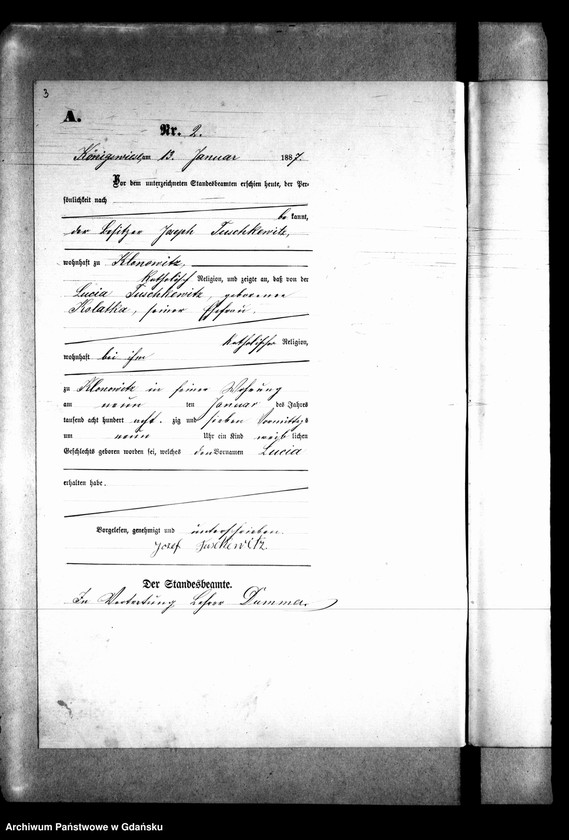 3
A.
Nr. 2.
Königswiese, am 13. Januar 1887.
Vor dem unterzeichneten Standesbeamten erschien heute, der Per-
sönlichkeit nach
be kannt,
der Besitzer Joseph Tuschkewitz,
wohnhaft zu Klonowitz,
katholisch Religion, und zeigte an, daß von der
Lucia Tuschkewitz, geborenen
Kolatka, seiner Ehefrau.
katholischer Religion,
wohnhaft bei ihm
zu Klonowitz in seiner Wohnung
am neun ten Januar des Jahres
tausend acht hundert acht. zig und sieben Vormittags
um neun Uhr ein Kind weib lichen
Geschlechts geboren worden sei, welches den Vornamen Lucia
erhalten habe.
Vorgelesen, genehmigt und unterschrieben.
Josef Tuschkewitz
Der Standesbeamte.
In Vertretung Lehrer Dumma.
Archiwum Państwowe w Gdańsku